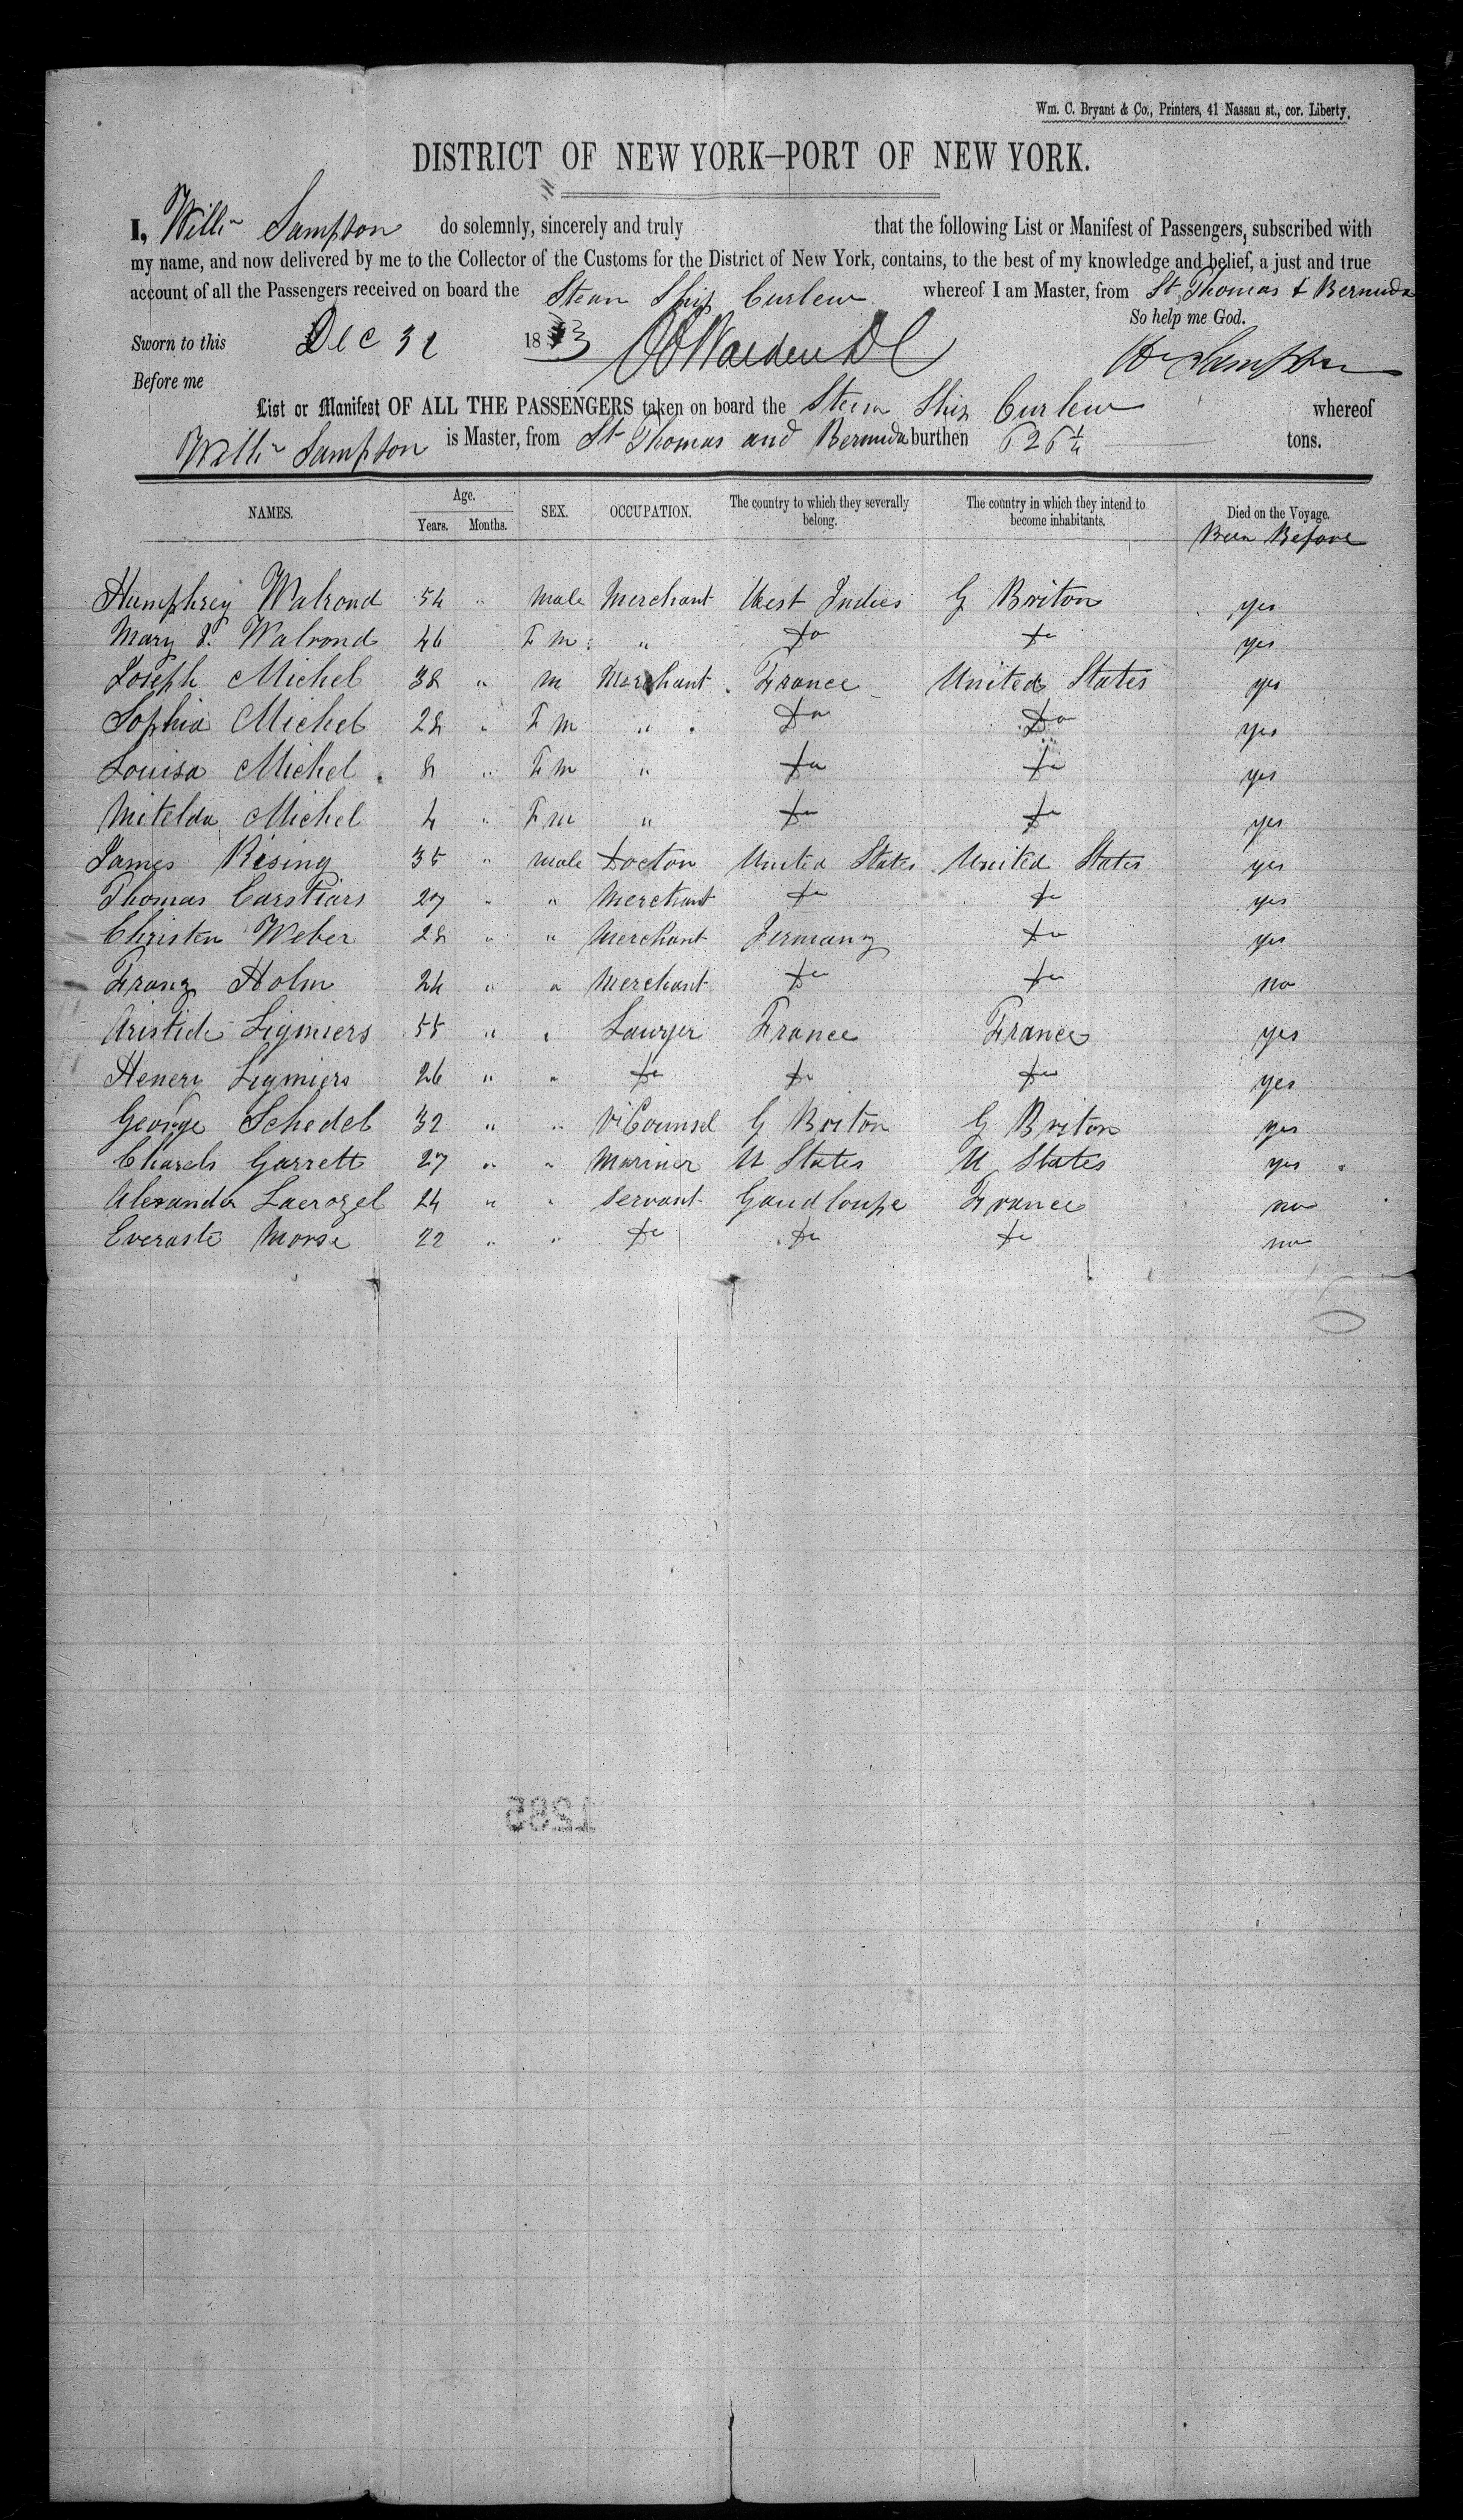 Wm. C. Bryant & Co., Printers, 41 Nassau st., cor. Liberty.
DISTRICT OF NEW YORK—PORT OF NEW YORK.
I, Willm Sampson do solemnly, sincerely and truly that the following List or Manifest of Passengers, subscribed with
my name, and now delivered by me to the Collector of the Customs for the District of New York, contains, to the best of my knowledge and belief, a just and true
account of all the Passengers received on board the Steam Ship Curlew whereof I am Master, from St Thomas & Bermuda
So help me God.
Sworn to this Dec 31 18 3
Wm Sampson
Before me
List or Manifest OF ALL THE PASSENGERS taken on board the Steam Ship Curlew whereof
Willm Sampson is Master, from St Thomas and Bermuda burthen tons.
NAMES. Age. Years. Months. SEX. OCCUPATION. The country to which they severally belong. The country in which they intend to become inhabitants. Died on the Voyage.
Been Before
Humphrey Walrond 54 " male Merchant West Indies G Briton yes
Mary P. Walrond 46 F m " Do Do yes
Joseph Michel 38 " m Merchant France United States yes
Sophia Michel 28 " F m " Do Do yes
Louisa Michel 8 " F m " Do Do yes
Mitelda Michel 4 " F m " Do Do yes
James Rising 35 " male Doctor United States United States yes
Thomas Carstiars 27 " " Merchant Do Do yes
Christen Weber 28 " " Merchant Jermany Do yes
Franz Holm 24 " " Merchant Do Do no
Aristide Ligniers 55 " " Lawyer France France yes
Henery Ligniers 26 " " Do Do Do yes
George Schedel 32 " " Vi Counsel G Briton G Briton yes
Charels Garrett 27 " " Mariner U States U States yes
Alexander Lacrozel 24 " " Servant Gaudloupe France no
Everaste Morse 22 " " Do Do Do no
1285